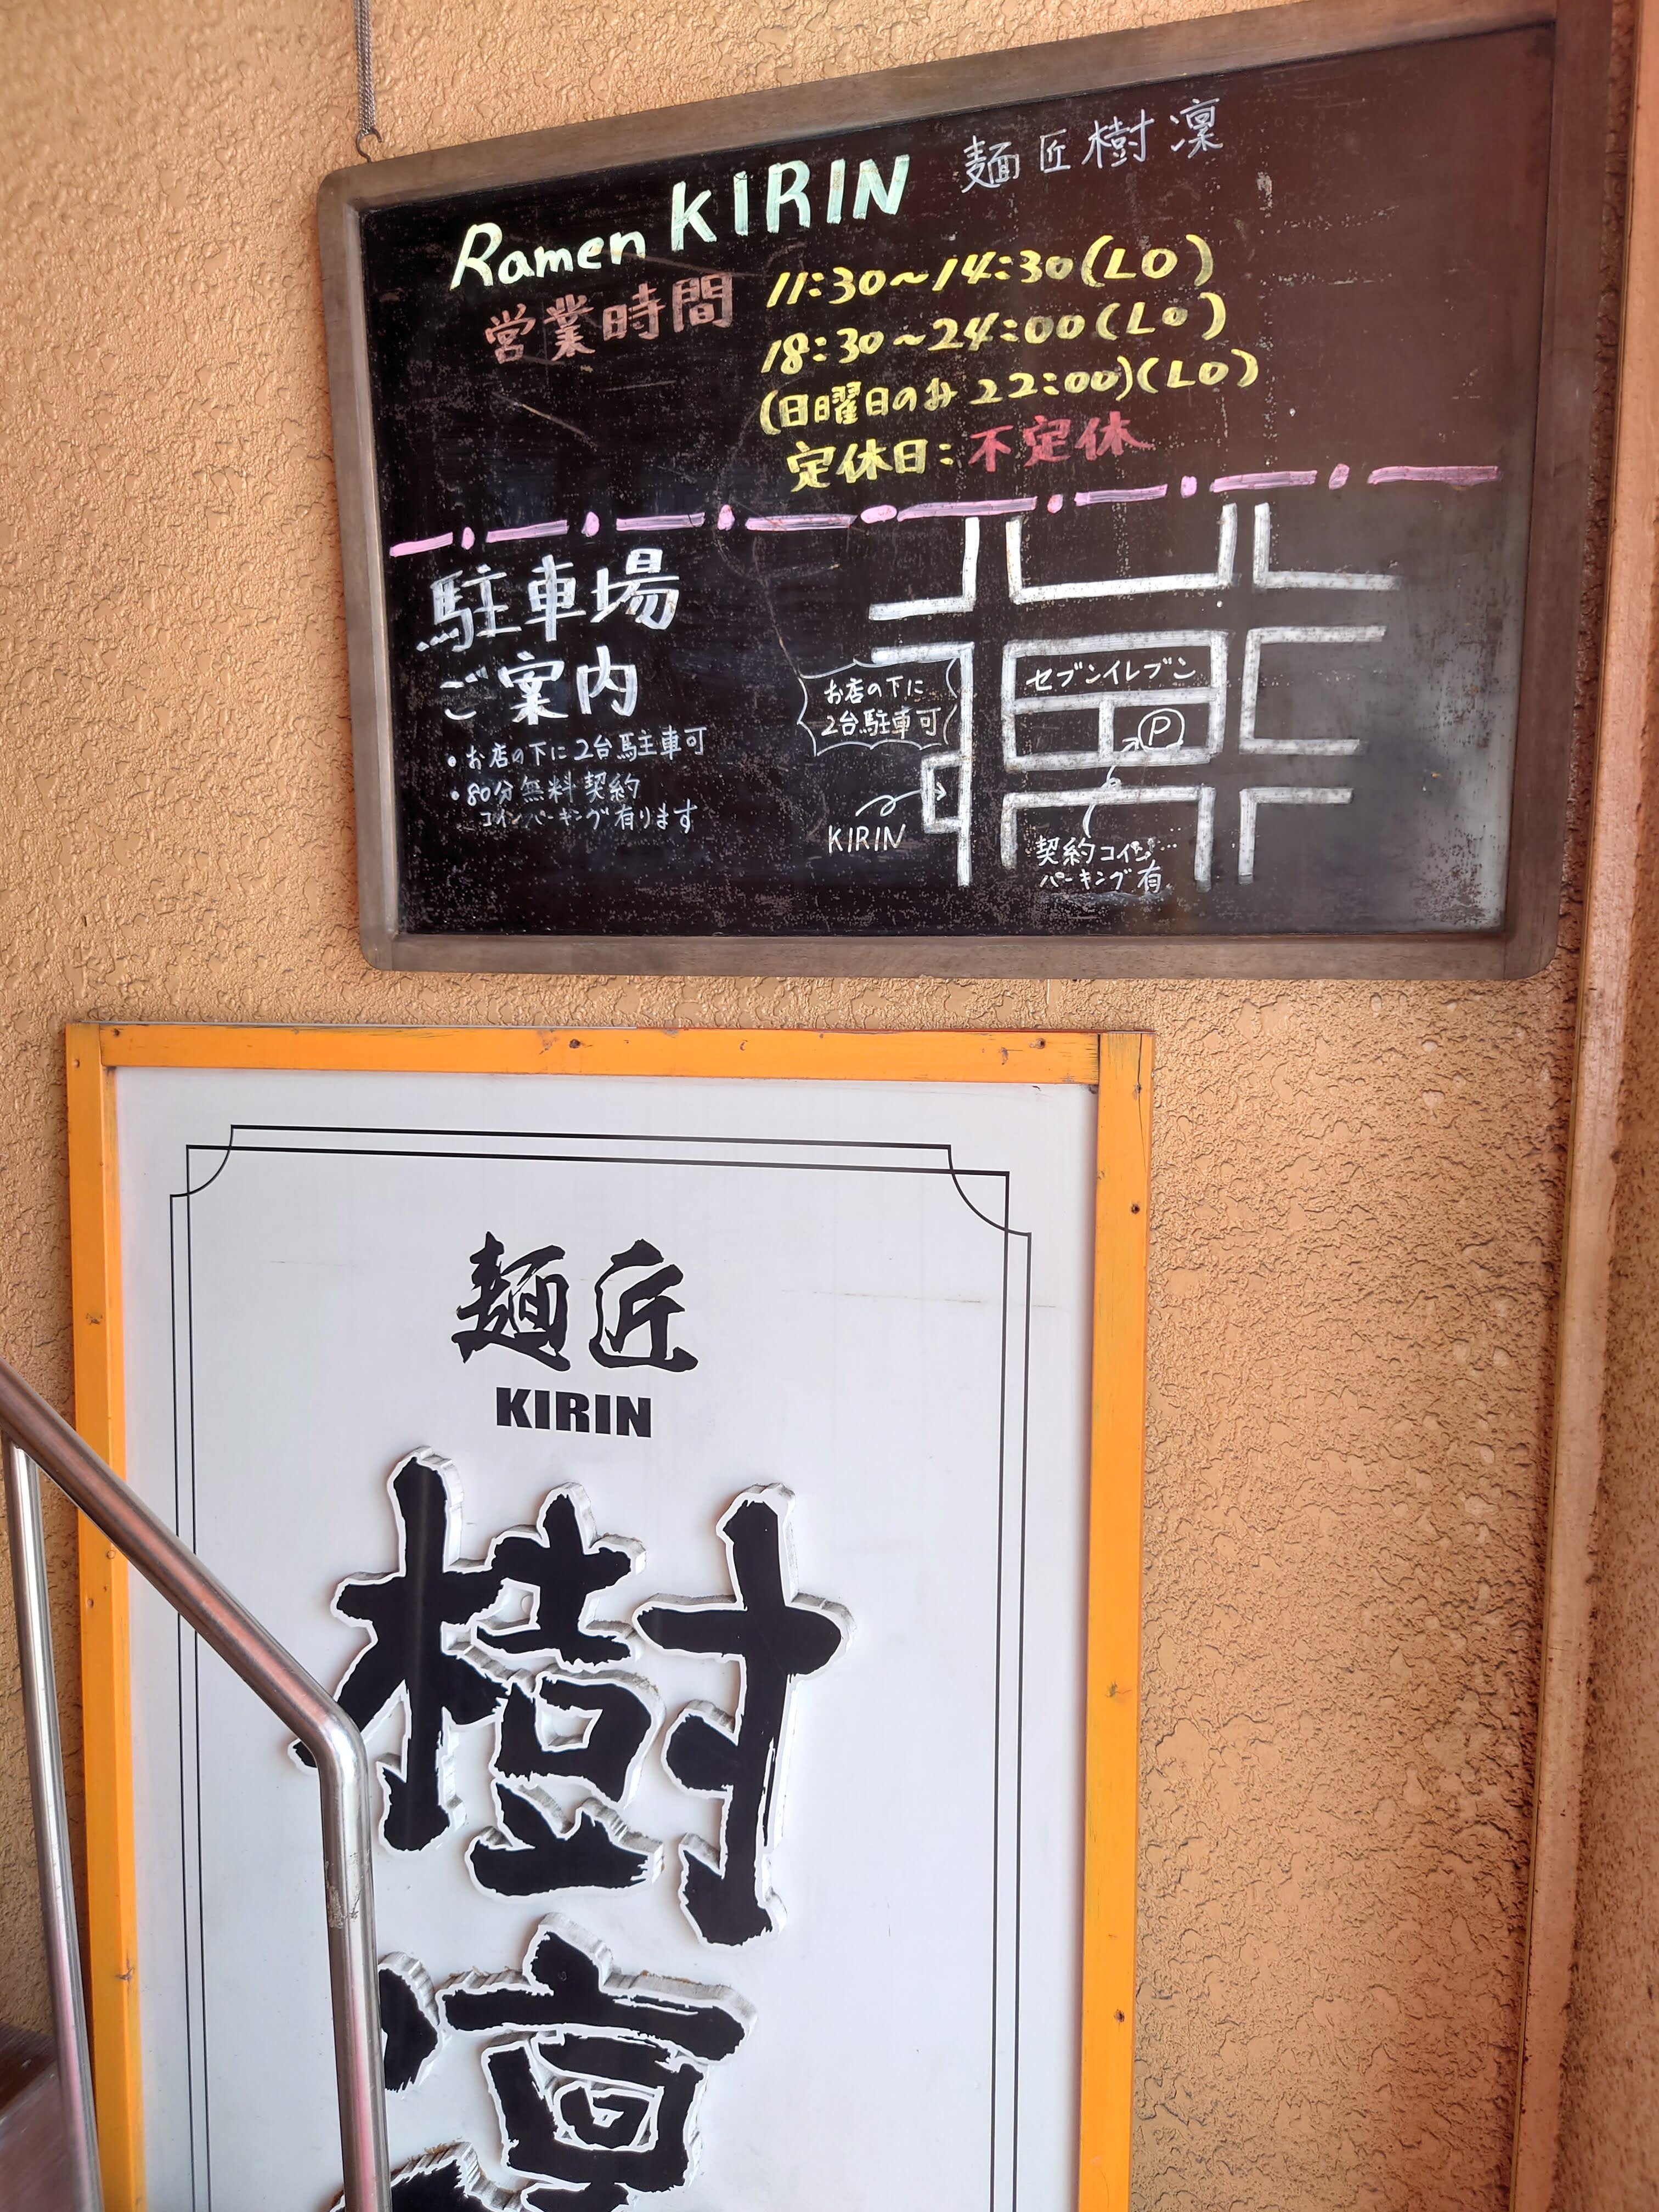 Ramen KIRIN 麺匠樹凜
営業時間 11:30~14:30(LO)
18:30~24:00(LO)
(日曜日のみ22:00)(LO)
定休日:不定休
駐車場
ご案内
・お店の下に2台駐車可
・80分無料契約
コインパーキング有ります
お店の下に
2台駐車可
セブンイレブン
P
KIRIN
契約コイン…
パーキング有
麺匠
KIRIN
樹
凜